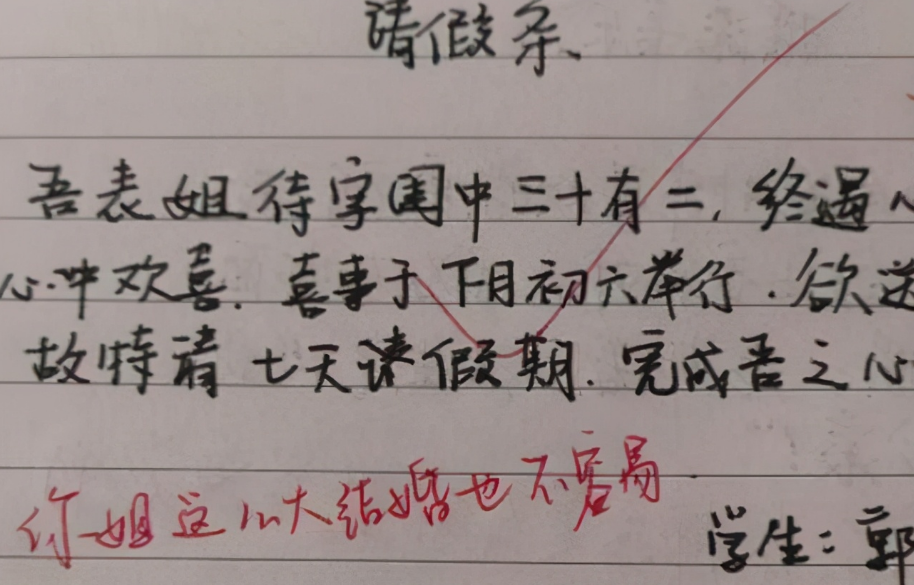 请假条
吾表姐待字闺中三十有二,终遇
心中欢喜.喜事于下月初六举行.欲送
故特请七天课假期.完成吾之心
你姐这么大结婚也不容易
学生:郭